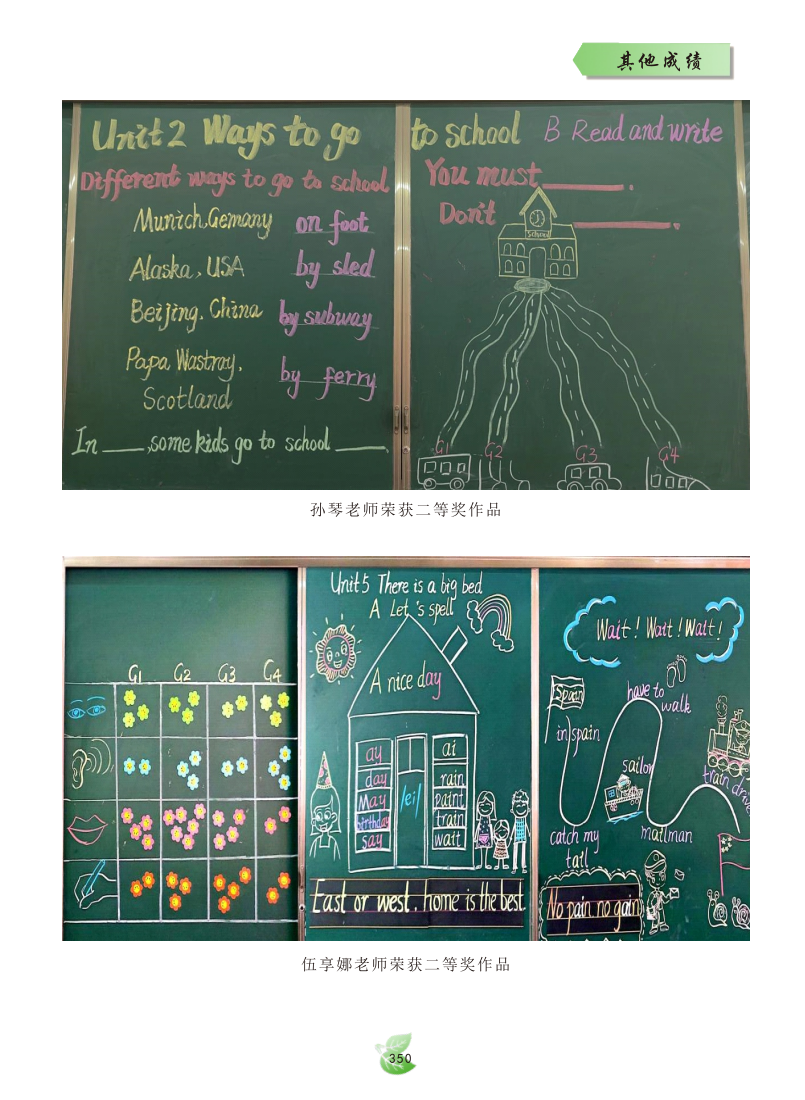 其他成绩
Unit 2 Ways to go to school B Read and write
Different ways to go to school
Munich, Gemany on foot
Alaska, USA by sled
Beijing, China by subway
Papa Wastray, by ferry
Scotland
In ____, some kids go to school ____.
You must ______.
Don't ______.
School
G1 G2 G3 G4
孙琴老师荣获二等奖作品
G1 G2 G3 G4
Unit 5 There is a big bed
A Let's spell
A nice day
ay
day
May
birthday
say
/ei/
ai
rain
paint
train
wait
East or west, home is the best.
Wait! Wait! Wait!
Spain
in spain
have to
walk
sailor
train drive
catch my
tail
mailman
No pain no gain
伍享娜老师荣获二等奖作品
350